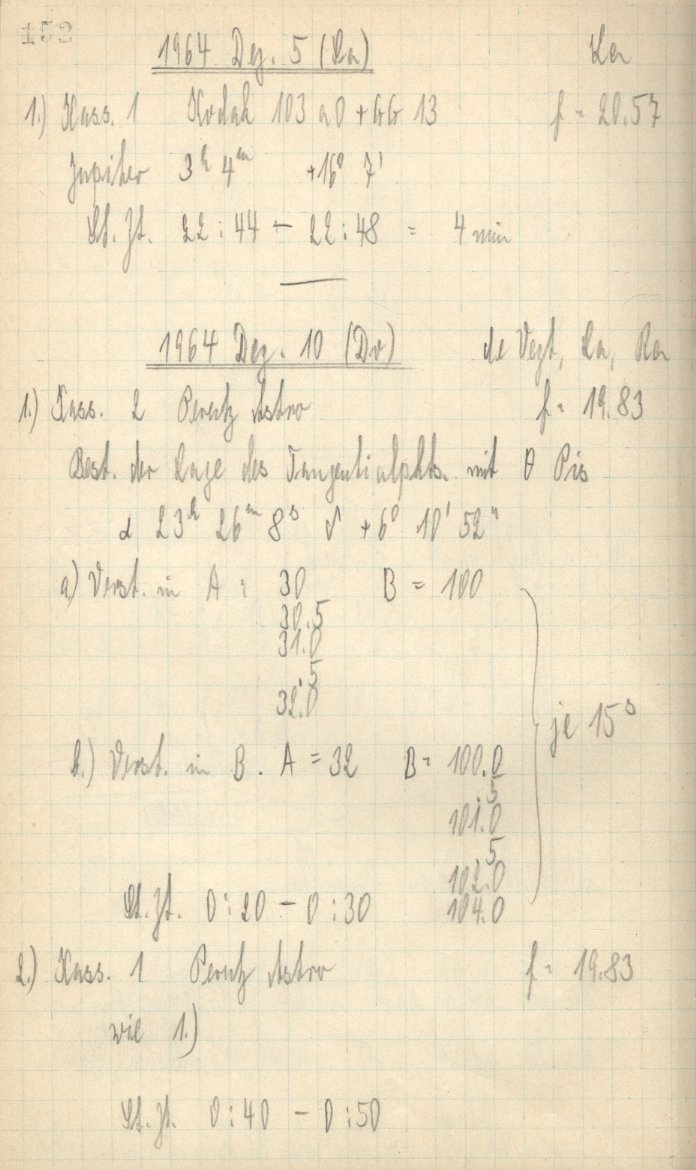 152
1964 Dez. 5 (Sa) La
1.) Kass. 1 Kodak 103 aO + GG 13 f = 20.57
Jupiter 3h 4m +16° 7'
St. Zt. 22:44 - 22:48 = 4 min
1964 Dez. 10 (Do) de Vegt, La, Ra
1.) Kass. 2 Perutz Astro f = 19.83
Best. der Lage des Tangentialpkts. mit θ Pis
α 23h 26m 8s δ +6° 10' 52"
a) Verst. in A : 30 B = 100
30.5
31.0
.5
32.0
je 15s
b.) Verst. in B. A = 32 B = 100.0
.5
101.0
.5
102.0
St. Zt. 0:20 - 0:30 104.0
2.) Kass. 1 Perutz Astro f = 19.83
wie 1.)
St. Zt. 0:40 - 0:50